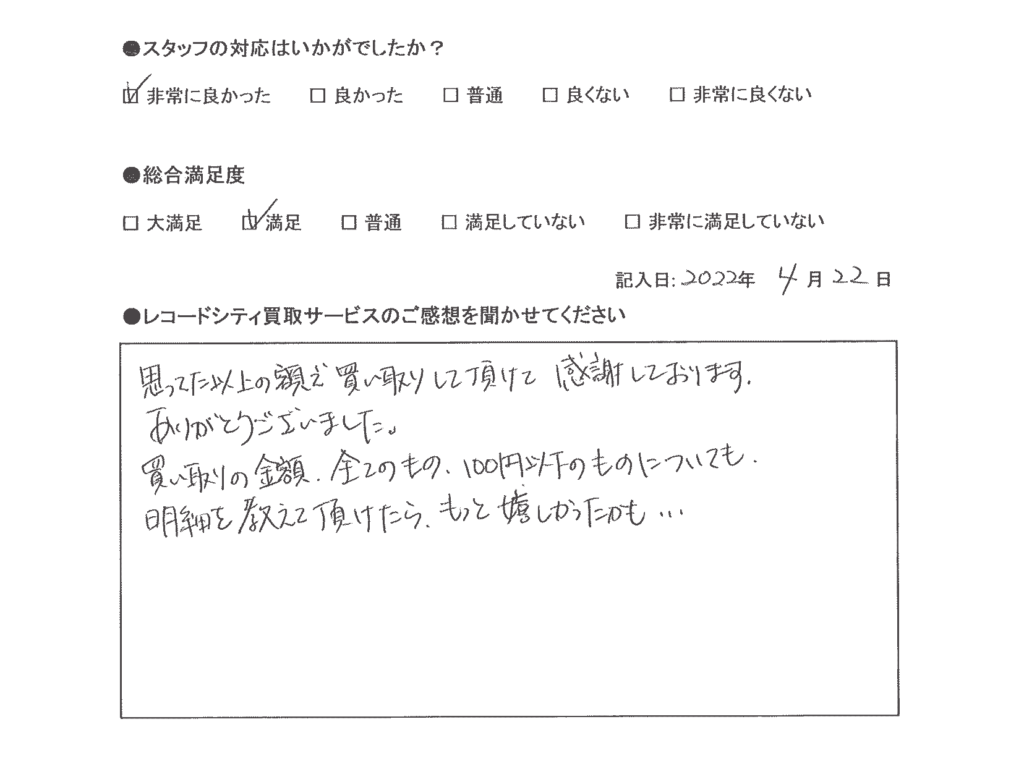 ●スタッフの対応はいかがでしたか？
☑ 非常に良かった □ 良かった □ 普通 □ 良くない □ 非常に良くない
●総合満足度
□ 大満足 ☑ 満足 □ 普通 □ 満足していない □ 非常に満足していない
記入日: 2022年 4月 22日
●レコードシティ買取サービスのご感想を聞かせてください
思ってた以上の額で買い取りして頂けて感謝しております.
ありがとうございました。
買い取りの金額、全てのもの、100円以下のものについても、
明細を教えて頂けたら、もっと嬉しかったかも…